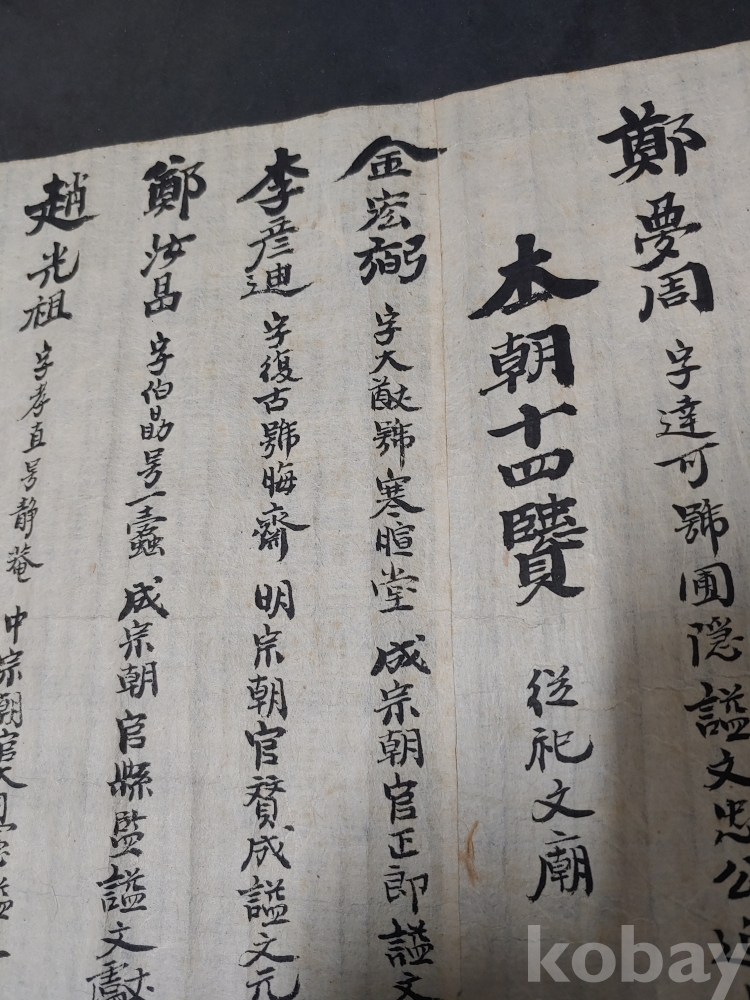 鄭夢周 字達可號圃隠謚文忠公
本朝十四贒 從祀文廟
金宏弼 字大猷號寒暄堂 成宗朝官正郎謚文
李彦迪 字復古號晦齋 明宗朝官賛成謚文元
鄭汝昌 字伯勗号一蠹 成宗朝官縣監謚文獻
趙光祖 字孝直号静菴 中宗朝官大司憲謚
kobay